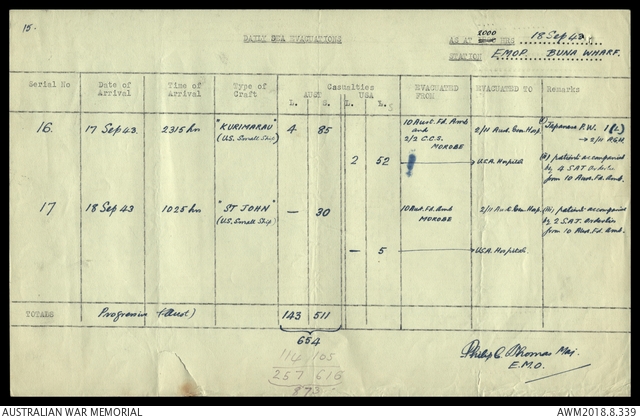 15.
DAILY SEA EVACUATIONS
AS AT 2000 HRS 18 Sep 43
STATION EMOP. BUNA WHARF.
Serial No
Date of Arrival
Time of Arrival
Type of Craft
Casualties
AUST USA
L. S. L. S
EVACUATED FROM
EVACUATED TO
Remarks
16. 17 Sep 43. 2315 hr "KURIMARAU" 4 85 10 Aust. Fd. Amb 2/11 Aust. Gen. Hosp. (i) Japanese P.W. 1 (L)
(U.S. Small Ship) and → 2/11 A.G.H.
2/2 C.C.S.
MOROBE
2 52 U.S.A. Hospitals (ii) patients accompanied
by 4 SAT Orderlies
from 10 Aust. Fd. Amb.
17 18 Sep 43 1025 hr "ST JOHN" — 30 10 Aust. Fd. Amb 2/11 Aust. Gen. Hosp. (iii) patients accompanied
(U.S. Small Ship) MOROBE by 2 S.A.T. orderlies
from 10 Aust. Fd. Amb.
— 5 U.S.A. Hospitals
TOTALS Progressive (Aust) 143 511
654
114 105
257 616
873
Philip C Thomas Maj.
E.M.O.
AUSTRALIAN WAR MEMORIAL AWM2018.8.339